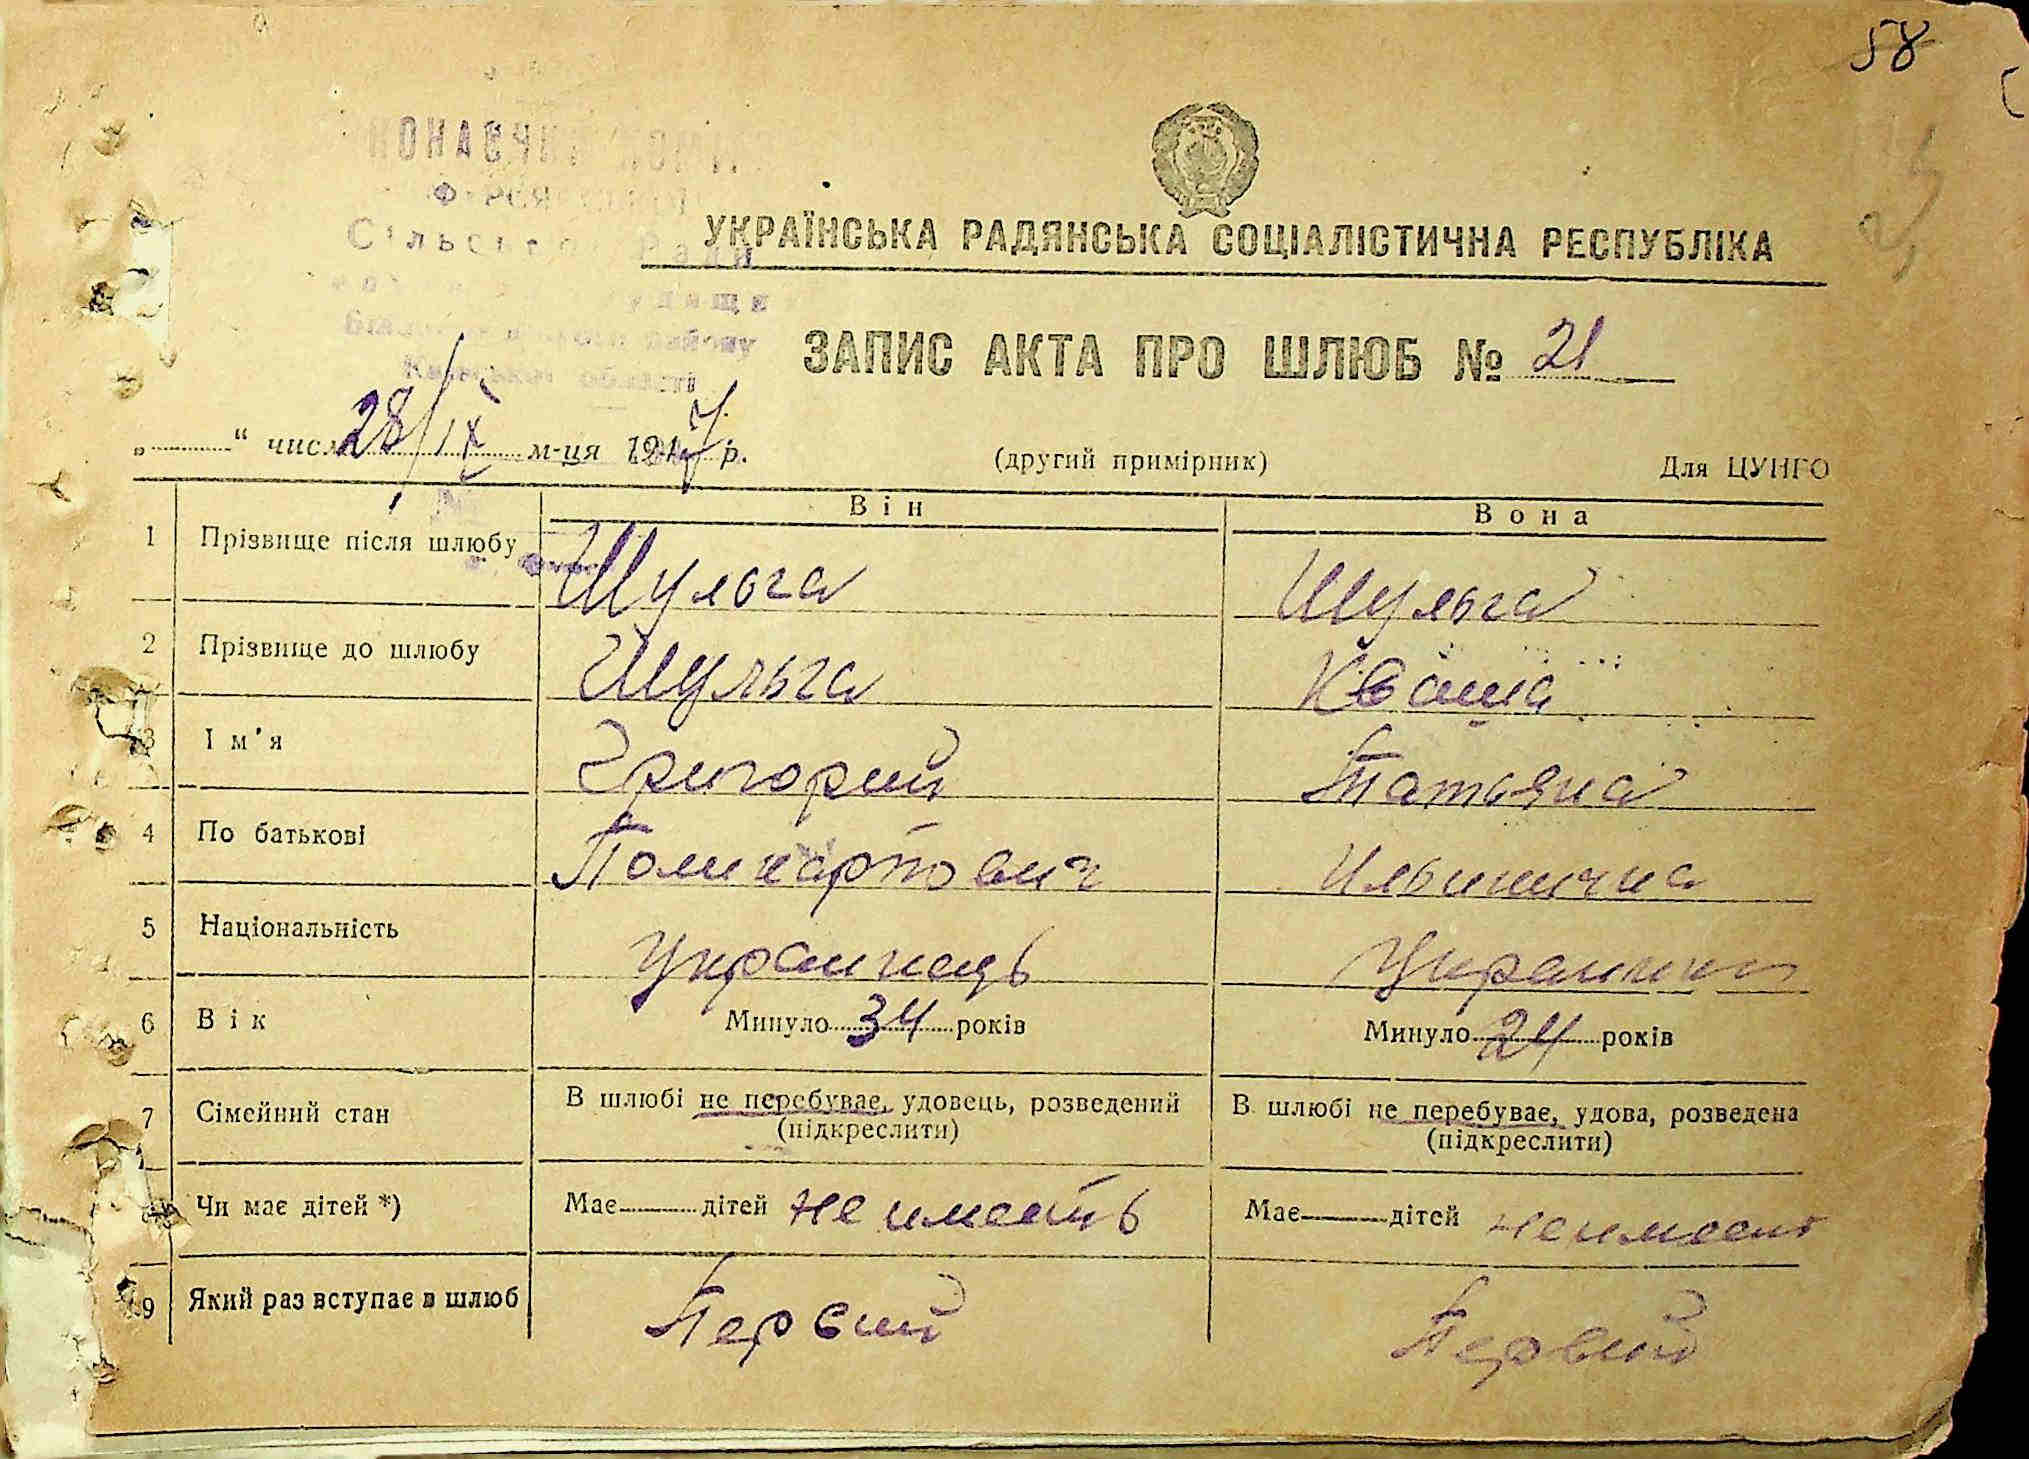 58
УКРАЇНСЬКА РАДЯНСЬКА СОЦІАЛІСТИЧНА РЕСПУБЛІКА
Сільської Ради
району
Київської області
ЗАПИС АКТА ПРО ШЛЮБ № 21
„ “ числ 28/IX м-ця 1947 р.
(другий примірник)
Для ЦУНГО
Він Вона
1 Прізвище після шлюбу Шульга Шульга
2 Прізвище до шлюбу Шульга Кваша
3 Ім'я Григорий Татьяна
4 По батькові Поликарпович Ильинична
5 Національність Украинець Украинка
6 Вік Минуло 34 років Минуло 24 років
7 Сімейний стан В шлюбі не перебуває, удовець, розведений В шлюбі не перебуває, удова, розведена
(підкреслити) (підкреслити)
8 Чи має дітей *) Має дітей не имееть Має дітей не имееть
9 Який раз вступає в шлюб Первий Первий